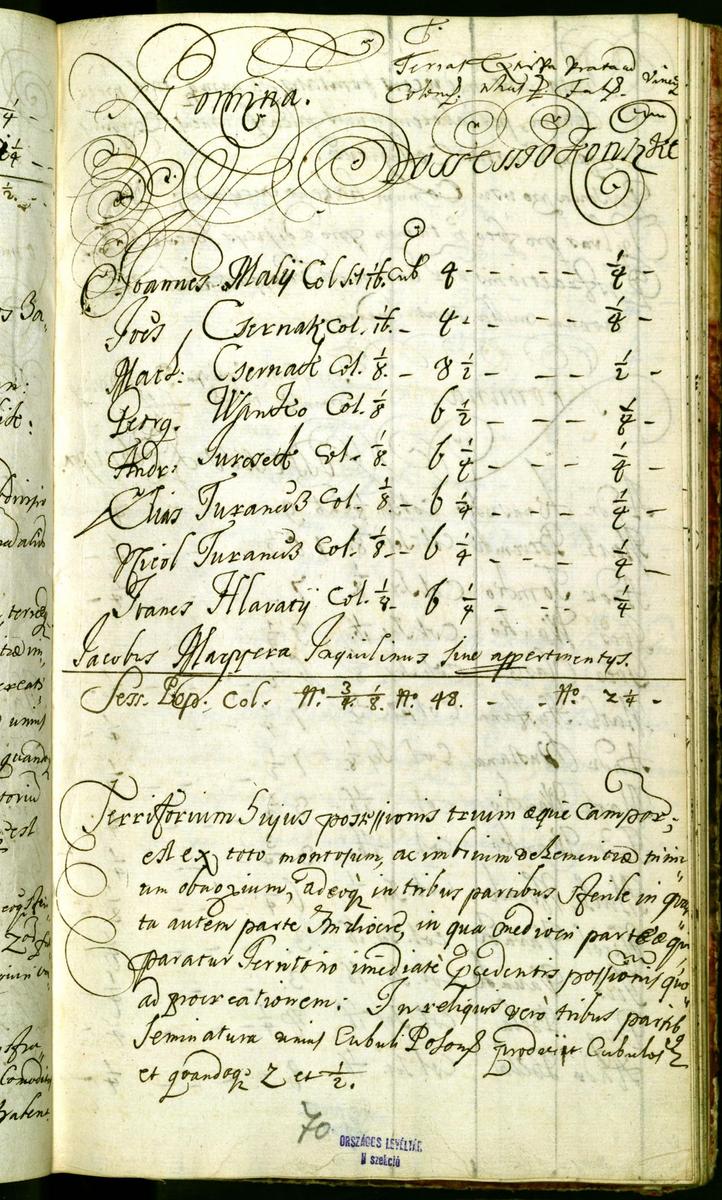 Nomina.
Terrae Extirpa Prata ad Vineae
Colons.
Possessio
Joannes Malÿ Col. 1/16. Cub 4 - - - - 1/4 -
Joes Csernak Col. 1/16. - 4 - - - - 1/8 -
Math: Csernak Col. 1/8. - 8 1/2 - - - 1/2 -
Georg. Wanko Col. 1/8 6 1/2 - - - 1/4 -
Andr: Col. 1/8. 6 1/4 - - - 1/4 -
Elias Turanus Col. 1/8. - 6 1/4 - - - 1/4 -
Nicol Turanus Col. 1/8. - 6 1/4 - - - 1/4 -
Joanes Hlavatÿ Col. 1/8. 6 1/4 - - - 1/4
Jacobus Inquilinus sine appertinentÿs.
Sess. Pop. Col. No. 3/4. 1/8. No. 48. - - No. 2 1/4 -
Territorium hujus possessionis trium aeque Campor:
est ex toto montosum, ac imbrium vehementiae nimi"
um obnoxium, adeoq; in tribus partibus sterile in quar"
ta autem parte mediocre, in qua mediocri parte aequi"
paratur Territorio imediatè praecedentis possionis quo"
ad procreationem: In reliquis verò tribus partib
Seminatura unius Cubuli Posons producit Cubulos 2
et quandoq; 2 et 1/2.
70
ORSZÁGOS LEVÉLTÁR
II szekció